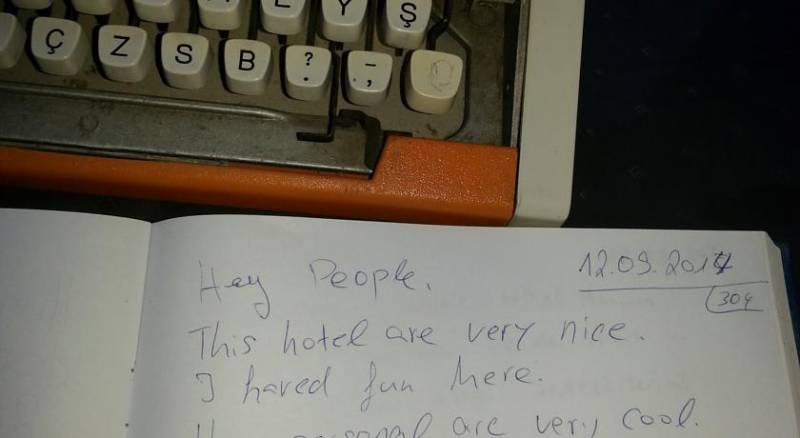 L Y Ş
Ç Z S B ? . - ;
Hey People.
12.09.2017
304
This hotel are very nice.
I haved fun here.
personal are very cool.